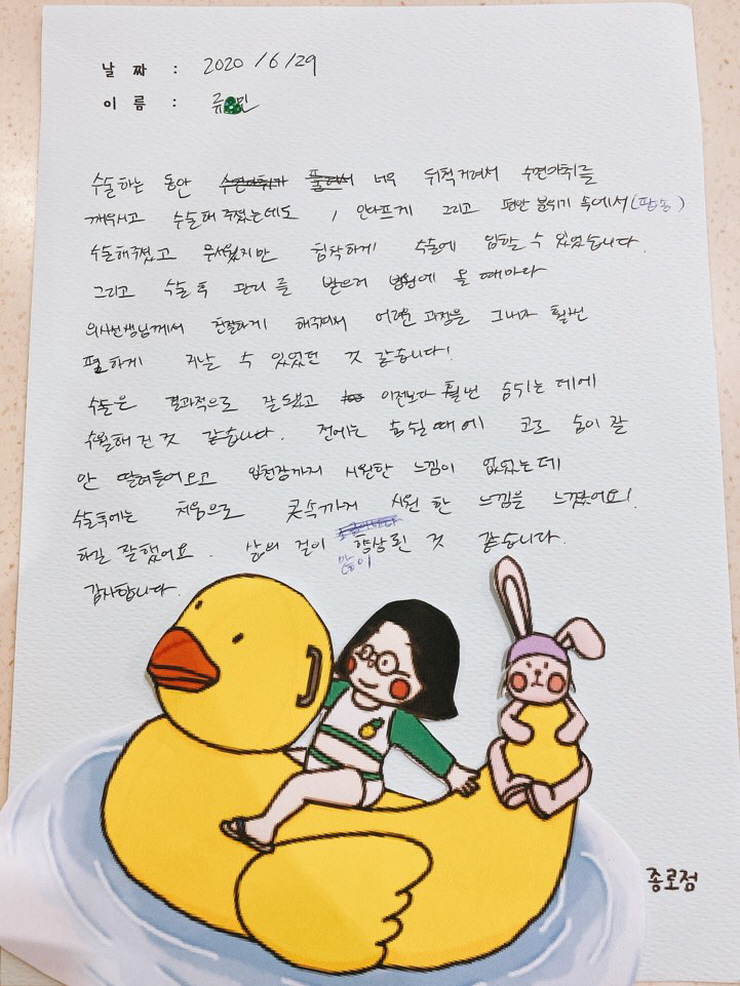 날 짜 : 2020 / 6 / 29
이 름 : 류 민
수술하는 동안 너무 뒤척거려서 수면마취를
깨우시고 수술해 주셨는데도 , 안아프게 그리고 편안 분위기 속에서 (팝송)
수술해주셨고 무서웠지만 침착하게 수술에 임할 수 있었습니다.
그리고 수술 후 관리를 받으러 병원에 올 때마다
의사선생님께서 친절하게 해주셔서 어려운 과정을 그나마 훨씬
편하게 지날 수 있었던 것 같습니다!
수술은 결과적으로 잘 됐고 이전보다 훨씬 숨쉬는 데에
수월해진 것 같습니다. 전에는 숨쉴 때에 코로 숨이 잘
안 딸려들어오고 입천장까지 시원한 느낌이 없었는데
수술후에는 처음으로 콧속까지 시원한 느낌을 느꼈어요!
하길 잘했어요. 삶의 질이 많이 향상된 것 같습니다.
감사합니다.
종로점